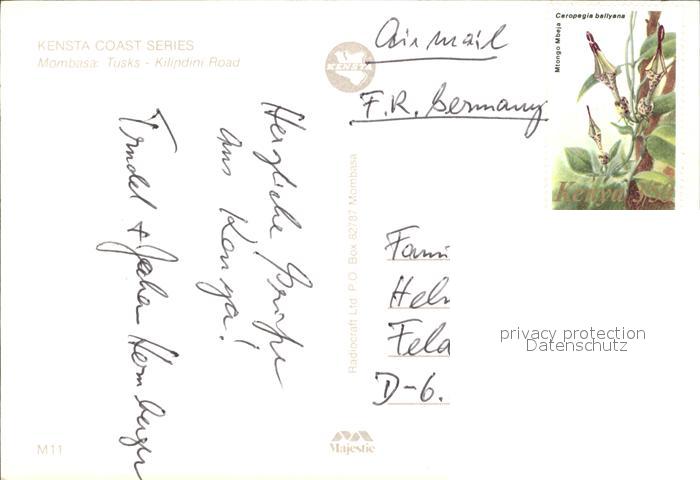 KENSTA COAST SERIES
Mombasa: Tusks - Kilindini Road
KENSTA
Air mail
F.R. Germany
Ceropegia ballyana
Mtongo Mbeja
Kenya 3/50
Herzliche Grüße
aus Kenya!
Trudel +
Radiocraft Ltd P.O. Box 82787 Mombasa
Fami
Hel
Feld
D-6.
privacy protection
Datenschutz
M11
Majestic